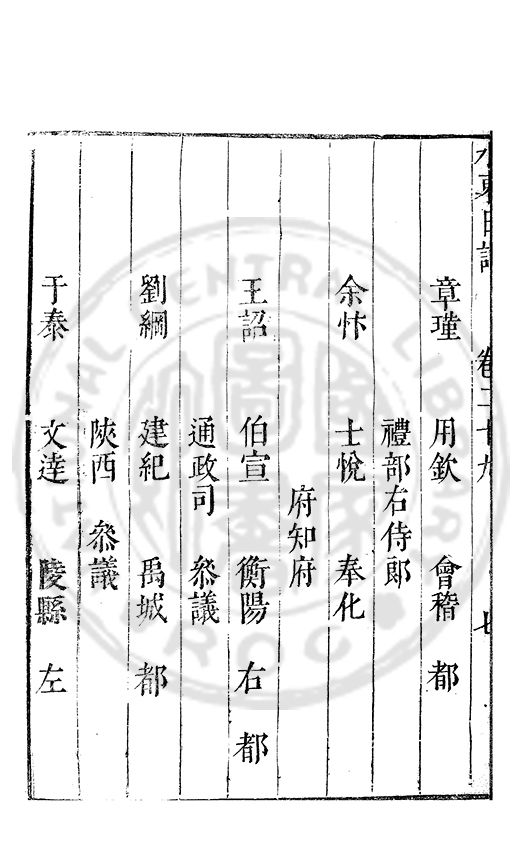 水東日記 卷二十九 七
章瑾 用欽 會稽 都
禮部右侍郎
余忭 士悅 奉化
府知府
王詔 伯宣 衡陽 右 都
通政司 叅議
劉綱 建紀 禹城 都
陝西 叅議
于泰 文達 陵縣 左